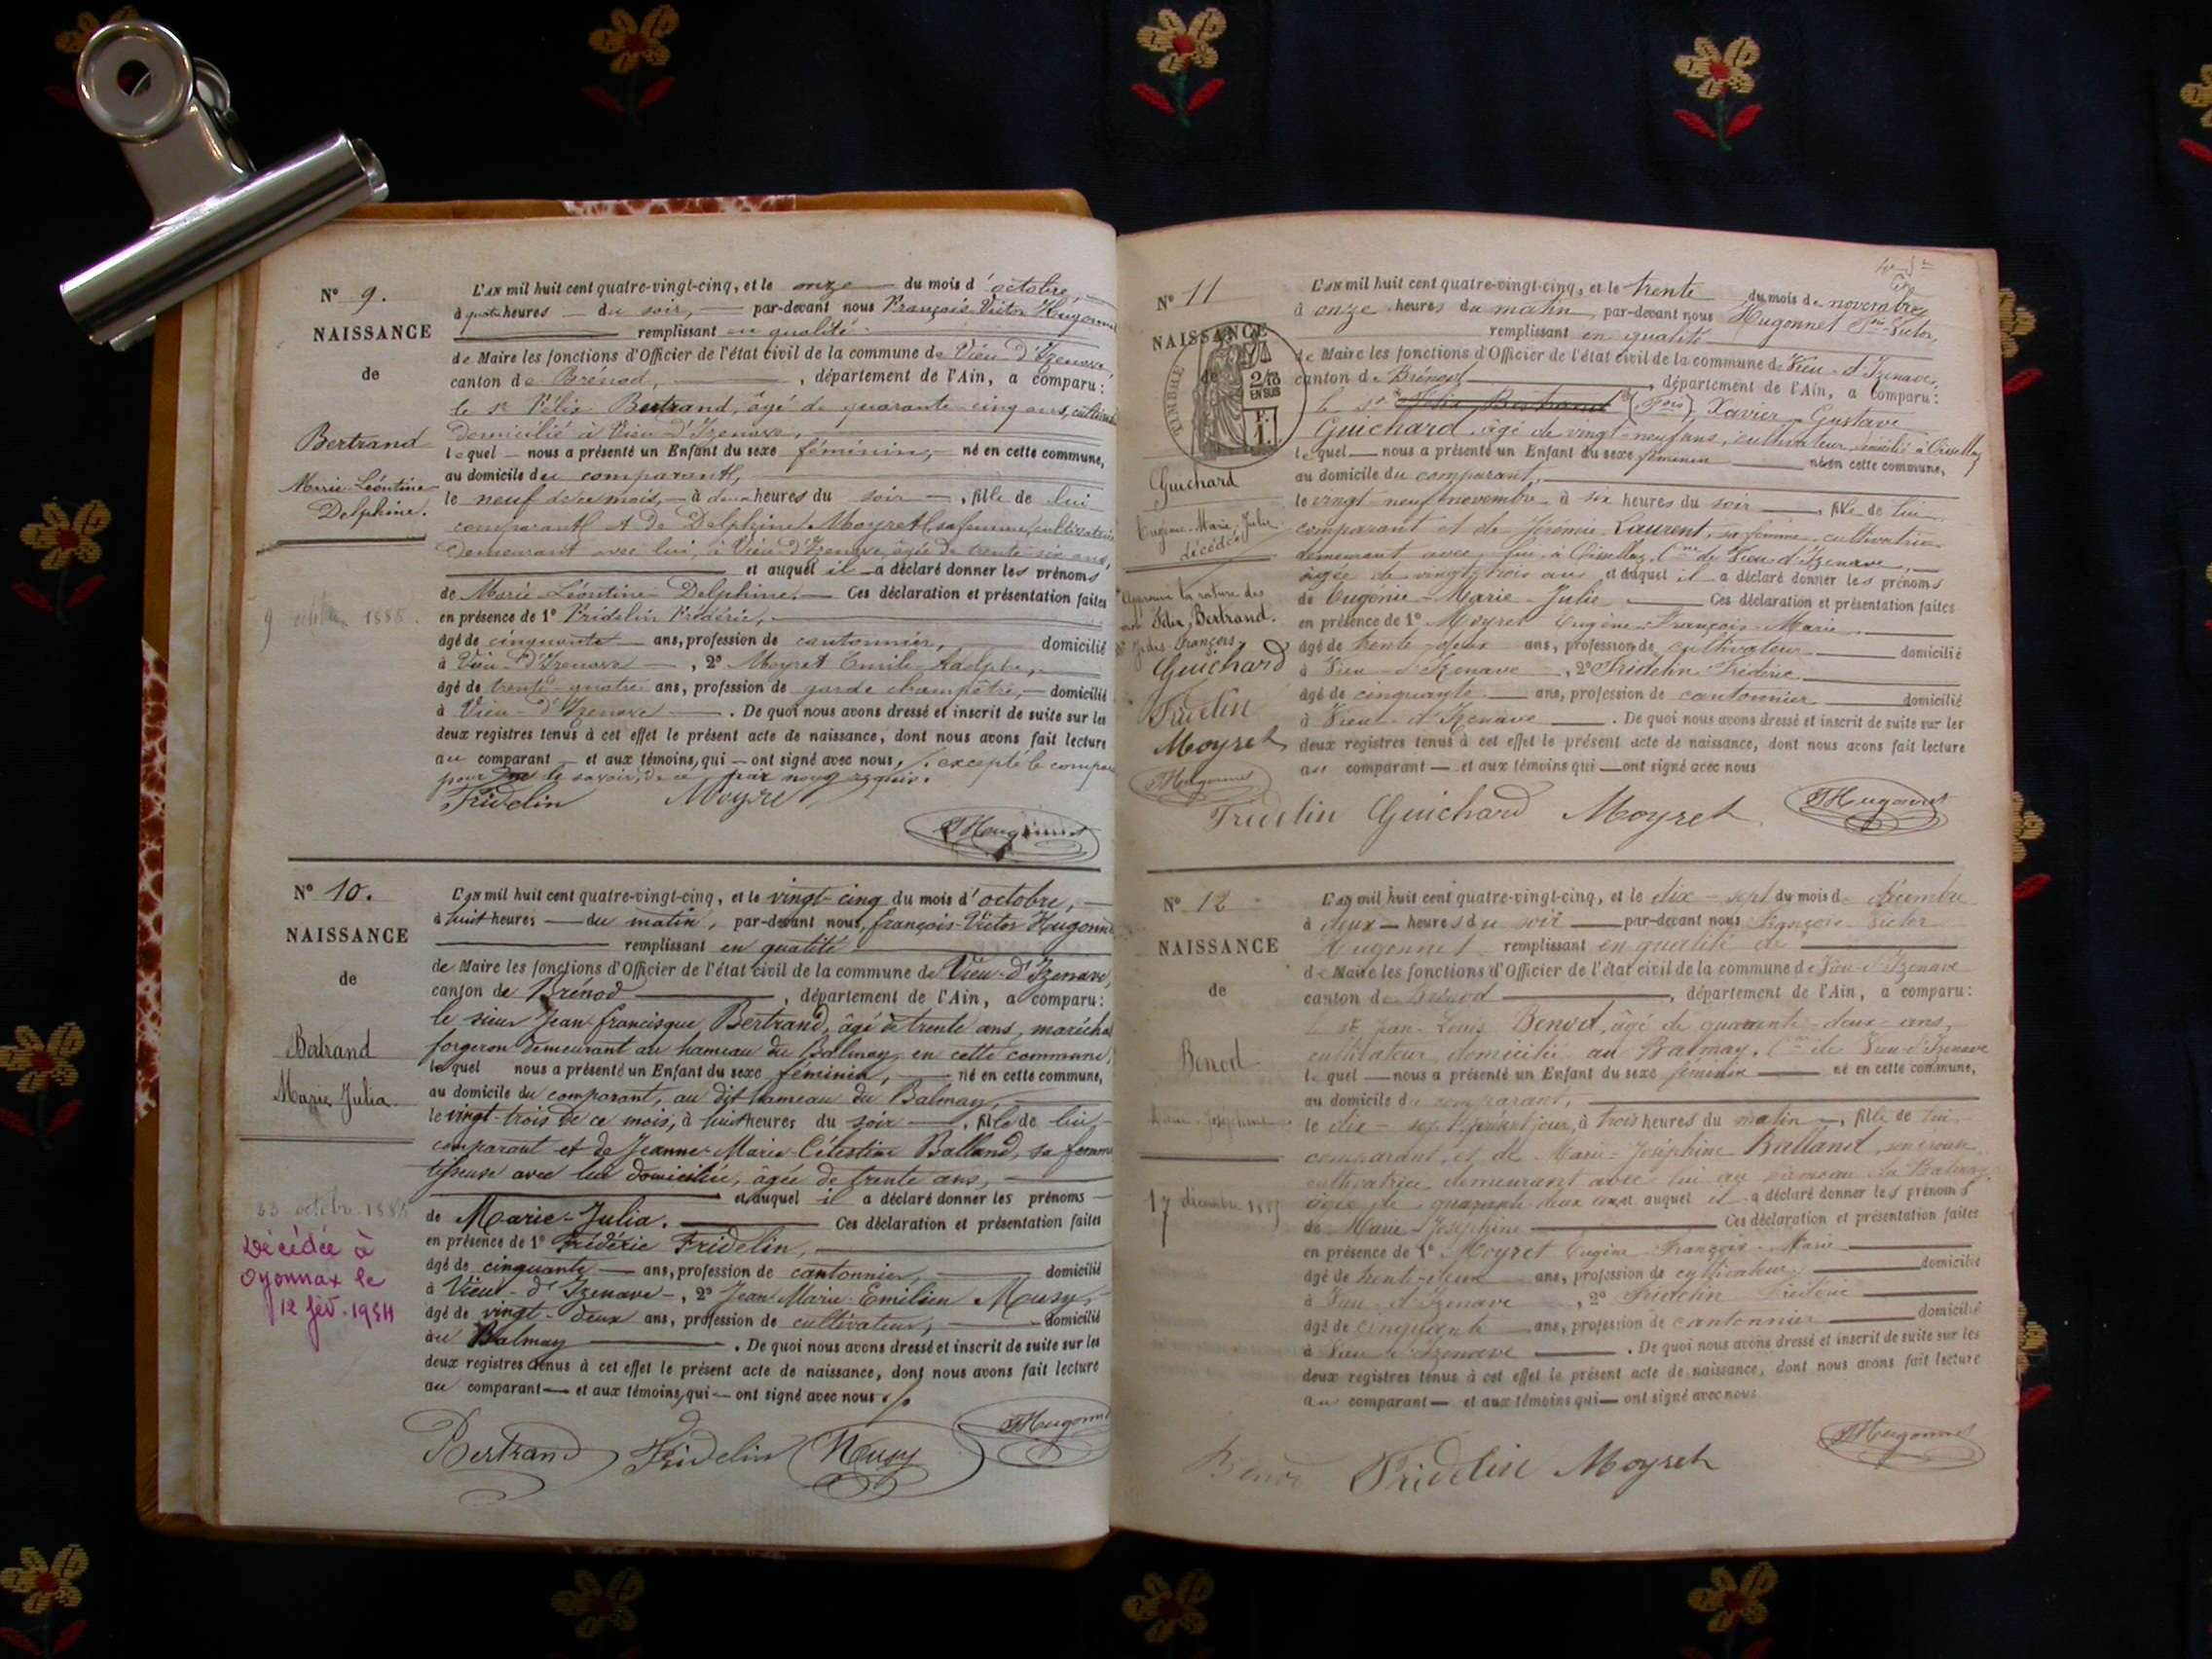 N° 9.
NAISSANCE
de
Bertrand
Marie-Léontine
Delphine.
9 1885.
L'AN mil huit cent quatre-vingt-cinq, et le onze du mois d'octobre,
à quatre heures du soir, par-devant nous François-Victor Hugonnet
remplissant en qualité
de Maire les fonctions d'Officier de l'état civil de la commune de Vieu-d'Izenave,
canton de Brénod, , département de l'Ain, a comparu:
le sr Félix Bertrand, âgé de quarante-cinq ans,
domicilié à Vieu-d'Izenave,
lequel nous a présenté un Enfant du sexe féminin, né en cette commune,
au domicile du comparant,
le neuf de ce mois, à deux heures du soir , fille de lui
comparant et de Delphine Moyret sa femme, cultivatrice
demeurant avec lui, à Vieu-d'Izenave, âgée de trente-six ans,
et auquel il a déclaré donner les prénoms
de Marie-Léontine-Delphine. Ces déclaration et présentation faites
en présence de 1° Fridelin Frédéric,
âgé de cinquante ans, profession de cantonnier, domicilié
à Vieu-d'Izenave , 2° Moyret Emile Adolphe,
âgé de trente-quatre ans, profession de garde champêtre, domicilié
à Vieu-d'Izenave . De quoi nous avons dressé et inscrit de suite sur les
deux registres tenus à cet effet le présent acte de naissance, dont nous avons fait lecture
au comparant et aux témoins, qui ont signé avec nous, excepté le
pour ne le savoir, de ce par nous requis.
Fridelin Moyret
Hugonnet
N° 10.
NAISSANCE
de
Bertrand
Marie Julia
23 octobre 1885
Décédée à
Oyonnax le
12 fév. 1954
L'AN mil huit cent quatre-vingt-cinq, et le vingt-cinq du mois d'octobre,
à huit heures du matin, par-devant nous, françois-Victor Hugonnet
remplissant en qualité
de Maire les fonctions d'Officier de l'état civil de la commune de Vieu-d'Izenave,
canton de Brénod , département de l'Ain, a comparu:
le sieur Jean-francisque Bertrand, âgé de trente ans, maréchal
forgeron demeurant au hameau du Balmay, en cette commune,
lequel nous a présenté un Enfant du sexe féminin, né en cette commune,
au domicile du comparant, au dit hameau du Balmay,
le vingt-trois de ce mois, à huit heures du soir , fille de lui
comparant et de Jeanne-Marie-Célestine Balland, sa femme
tisseuse avec lui domiciliée, âgée de trente ans,
et auquel il a déclaré donner les prénoms
de Marie-Julia. Ces déclaration et présentation faites
en présence de 1° Frédéric Fridelin,
âgé de cinquante ans, profession de cantonnier, domicilié
à Vieu-d'Izenave , 2° Jean Marie Emilien Musy,
âgé de vingt-deux ans, profession de cultivateur, domicilié
au Balmay . De quoi nous avons dressé et inscrit de suite sur les
deux registres tenus à cet effet le présent acte de naissance, dont nous avons fait lecture
au comparant et aux témoins, qui ont signé avec nous
Bertrand Fridelin Musy Hugonnet
N° 11
NAISSANCE
de
TIMBRE
EN SUS
F.
1.
Guichard
Eugénie-Marie-Julie
décédée
Approuvé la rature des
mots Félix Bertrand.
François
Guichard
Fridelin
Moyret
Hugonnet
L'AN mil huit cent quatre-vingt-cinq, et le trente du mois de novembre
à onze heures du matin par-devant nous Hugonnet Fois Victor,
remplissant en qualité
de Maire les fonctions d'Officier de l'état civil de la commune de Vieu-d'Izenave,
canton de Brénod , département de l'Ain, a comparu:
le sr Félix Bertrand (Fois) Xavier-Gustave
Guichard, âgé de vingt-neuf ans, cultivateur, domicilié à
lequel nous a présenté un Enfant du sexe féminin né en cette commune,
au domicile du comparant,
le vingt neuf novembre à six heures du soir , fille de lui
comparant et de Jérémie Laurent, sa femme, cultivatrice
demeurant avec lui, à Cne de Vieu-d'Izenave,
âgée de vingt-trois ans et auquel il a déclaré donner les prénoms
de Eugénie-Marie-Julie Ces déclaration et présentation faites
en présence de 1° Moyret Eugène-François-Marie
âgé de trente-deux ans, profession de cultivateur domicilié
à Vieu-d'Izenave , 2° Fridelin Frédéric
âgé de cinquante ans, profession de cantonnier domicilié
à Vieu-d'Izenave . De quoi nous avons dressé et inscrit de suite sur les
deux registres tenus à cet effet le présent acte de naissance, dont nous avons fait lecture
au comparant et aux témoins qui ont signé avec nous
Fridelin Guichard Moyret Hugonnet
N° 12
NAISSANCE
de
Benod
Marie-Joséphine
17 décembre 1885
L'AN mil huit cent quatre-vingt-cinq, et le dix-sept du mois de décembre
à deux heures du soir par-devant nous François-Victor
Hugonnet remplissant en qualité de
de Maire les fonctions d'Officier de l'état civil de la commune de Vieu-d'Izenave
canton de Brénod , département de l'Ain, a comparu:
le sr Jean-Louis Benod, âgé de quarante-deux ans,
cultivateur domicilié au Balmay, Cne de Vieu-d'Izenave
lequel nous a présenté un Enfant du sexe féminin né en cette commune,
au domicile du comparant,
le dix-sept présent jour, à trois heures du matin , fille de lui
comparant, et de Marie-Joséphine Balland, son épouse,
cultivatrice demeurant avec lui au hameau du Balmay,
âgée de quarante deux ans et auquel il a déclaré donner les prénoms
de Marie-Joséphine Ces déclaration et présentation faites
en présence de 1° Moyret Eugène-François-Marie
âgé de trente-deux ans, profession de cultivateur domicilié
à Vieu-d'Izenave , 2° Fridelin Frédéric
âgé de cinquante ans, profession de cantonnier domicilié
à Vieu-d'Izenave . De quoi nous avons dressé et inscrit de suite sur les
deux registres tenus à cet effet le présent acte de naissance, dont nous avons fait lecture
au comparant et aux témoins qui ont signé avec nous
Benod Fridelin Moyret Hugonnet